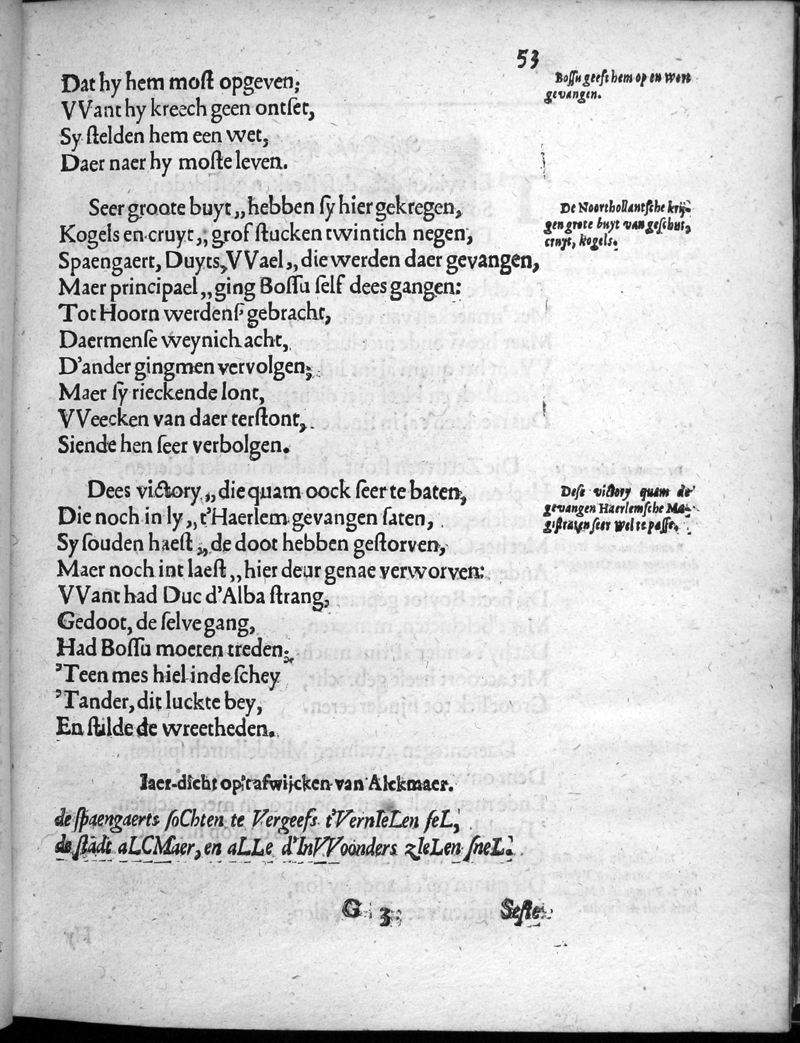 53
Dat hy hem moſt opgeven;
VVant hy kreech geen ontſet,
Sy ſtelden hem een wet,
Daer naer hy moſte leven.
Boſſu geeft hem op en wert
gevangen.
Seer groote buyt „ hebben ſy hier gekregen,
Kogels en cruyt „ grof ſtucken twintich negen,
Spaengaert, Duyts, VVael „ die werden daer gevangen,
Maer principael „ ging Boſſu ſelf dees gangen:
Tot Hoorn werdenſ' gebracht,
Daermenſe weynich acht,
D'ander gingmen vervolgen;
Maer ſy rieckende lont,
VVeecken van daer terſtont,
Siende hen ſeer verbolgen.
De Noorthollantſche krij-
gen grote buyt van geſchut,
cruyt, kogels.
Dees victory „ die quam oock ſeer te baten,
Die noch in ly „ t'Haerlem gevangen ſaten,
Sy ſouden haeſt „ de doot hebben geſtorven,
Maer noch int laeſt „ hier deur genae verworven:
VVant had Duc d'Alba ſtrang,
Gedoot, de ſelve gang,
Had Boſſu moeten treden;
'Teen mes hiel inde ſchey
'Tander, dit luckte bey,
En ſtilde de wreetheden.
Deſe victory quam de
gevangen Haerlemſche Ma-
giſtraten ſeer wel te paſſe.
Iaer-dicht op't afwijcken van Alckmaer.
de ſpaengaerts ſoChten te Vergeefs t'VernIeLen feL,
de ſtadt aLCMaer, en aLLe d'InVVoonders zIeLen ſneL.
G 3
Seſte